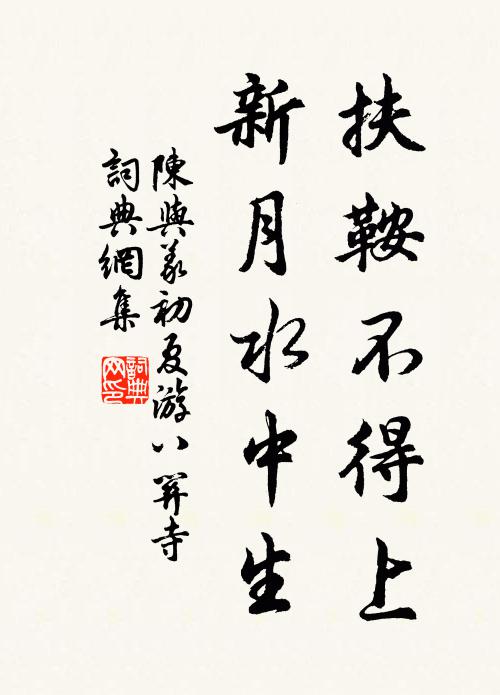 扶鞍不得上
新月水中生
陳與義初夏游八關寺
詞典網集
詞典網印